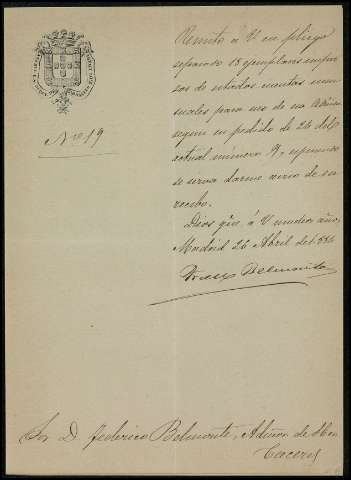 Nº 19
Remito á V en pliego
separado 18 ejemplares impre
sos de estados cuentas men
suales para uso de su Admón
según su pedido de 24 del
actual número 9, esperando
se sirva darme aviso de su
recibo.
Dios güe. á V muchos años.
Madrid 26 Abril de 1884
Belmonte
Sor D. Federico Belmonte, Admor de
Caceres